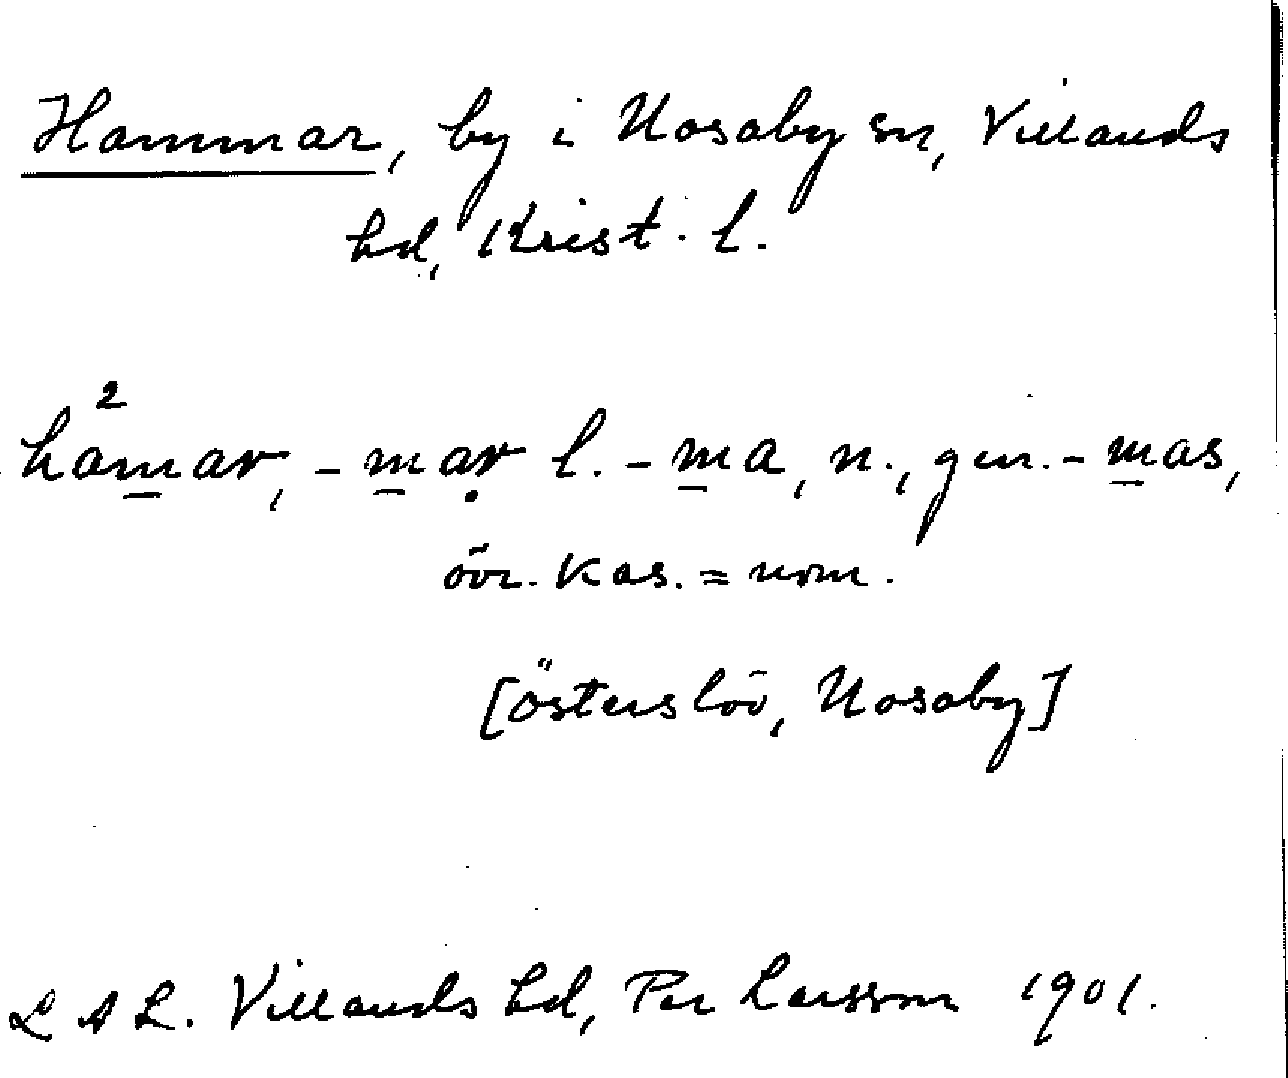 Hammar, by i Nosaby sn, Villands
hd, Krist. l.
ha²m̲ar, -m̲aṛ l. -m̲a, n., gen. -m̲as,
övr. kas. = nom.
[Österslöv, Nosaby]
LAL. Villands hd, Per Larsson 1901.